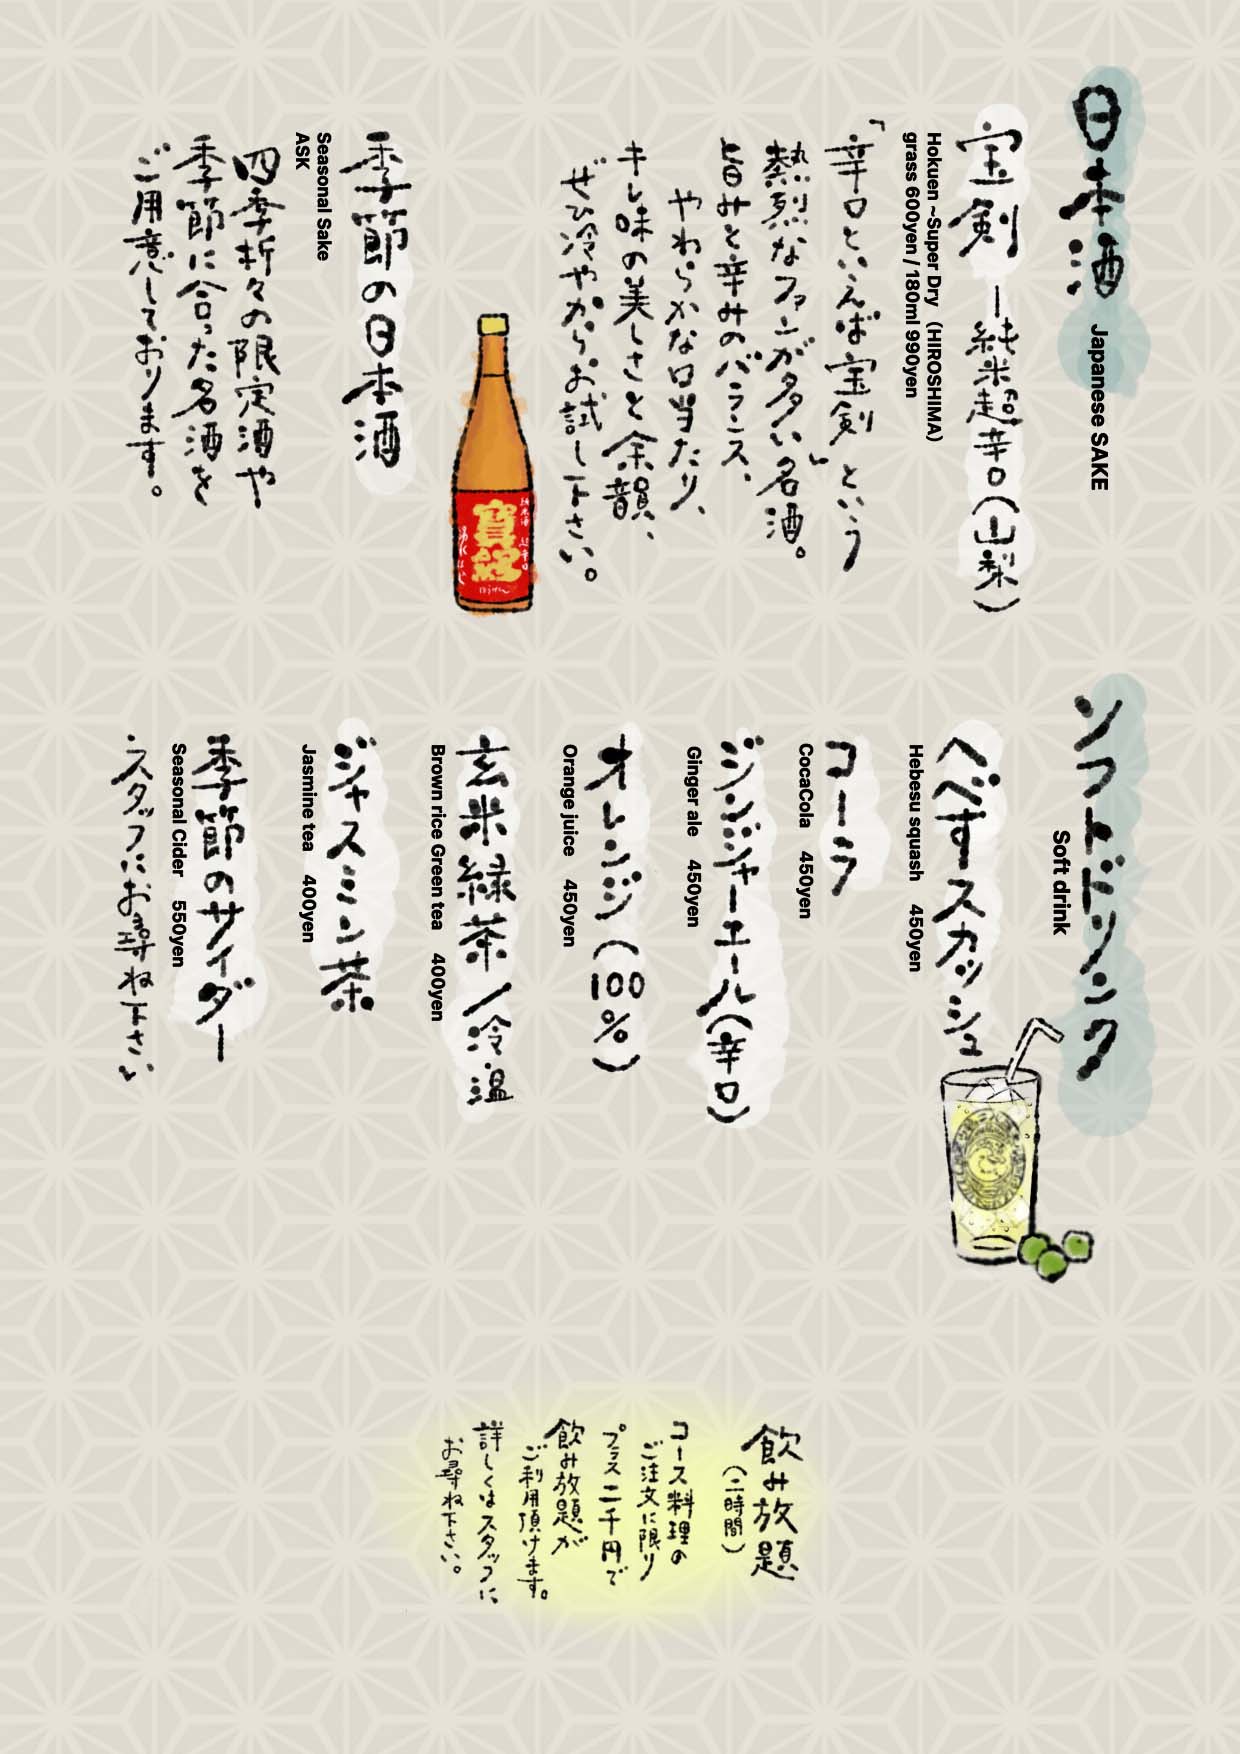 日本酒
Japanese SAKE
宝剣 ー純米超辛口(山梨)
Hokuen ~Super Dry (HIROSHIMA)
grass 600yen / 180ml 990yen
「辛口といえば宝剣」という
熱烈なファンが多い名酒。
旨みと辛みのバランス、
やわらかな口当たり、
キレ味の美しさと余韻、
ぜひ冷やからお試し下さい。
純米酒 超辛口
寶剣
ほうけん
季節の日本酒
Seasonal Sake
ASK
四季折々の限定酒や
季節に合った名酒を
ご用意しております。
ソフトドリンク
Soft drink
へべすスカッシュ
Hebesu squash 450yen
コーラ
CocaCola 450yen
ジンジャーエール(辛口)
Ginger ale 450yen
オレンジ(100%)
Orange juice 450yen
玄米緑茶/冷・温
Brown rice Green tea 400yen
ジャスミン茶
Jasmine tea 400yen
季節のサイダー
Seasonal Cider 550yen
スタッフにお尋ね下さい
飲み放題
(二時間)
コース料理の
ご注文に限り
プラス二千円で
飲み放題が
ご利用頂けます。
詳しくはスタッフに
お尋ね下さい。